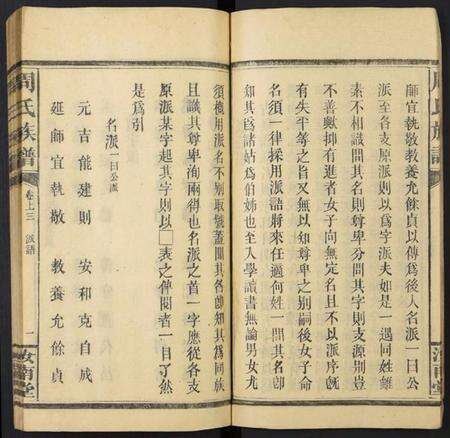 周氏族譜
師宜執敬敎養允餘貞以傳爲後人名派一曰公
派至各支原派則以爲字派夫如是一遇同姓雖
素不相識問其名則尊卑分問其字則支源別豈
不善歟抑有進者女子向無定名且不以派序旣
有失平等之旨又無以知尊卑之別嗣後女子命
名須一律採用派語將來任適何姓一問其名卽
知其爲諸姑爲伯姊也至入學讀書無論男女尤
汝南堂
須槪用派名不別取號蓋聞其名卽知其爲同族
且識其尊卑洵兩得也名派之首一字應從各支
原派某字起其字則以□表之俾閱者一目了然
是爲引
名派一曰公派
元吉能建則 安和克自成
延師宜執敬 敎養允餘貞
周氏族譜
卷上三 派語
一
汝南堂